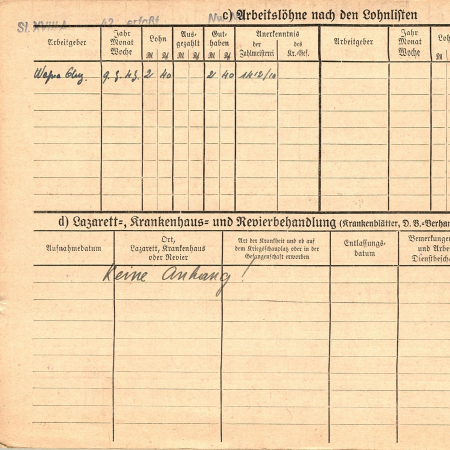 c) Arbeitslöhne nach den Lohnlisten
Arbeitgeber
Jahr Monat Woche
Lohn
Ausgezahlt
Guthaben
Anerkenntnis
der Zahlmeisterei
des Kr.-Gef.
Arbeitgeber
Jahr Monat Woche
9. 3. 43. 2 40 2 40
d) Lazarett-, Krankenhaus- und Revierbehandlung (Krankenblätter, D. B.-Verha
Aufnahmedatum
Ort, Lazarett, Krankenhaus oder Revier
Art der Krankheit und ob auf dem Kriegsschauplatz oder in der Gefangenschaft erworben
Entlassungs-datum
Bemerkungen und Arbe Dienstbesch
Keine Anhang!